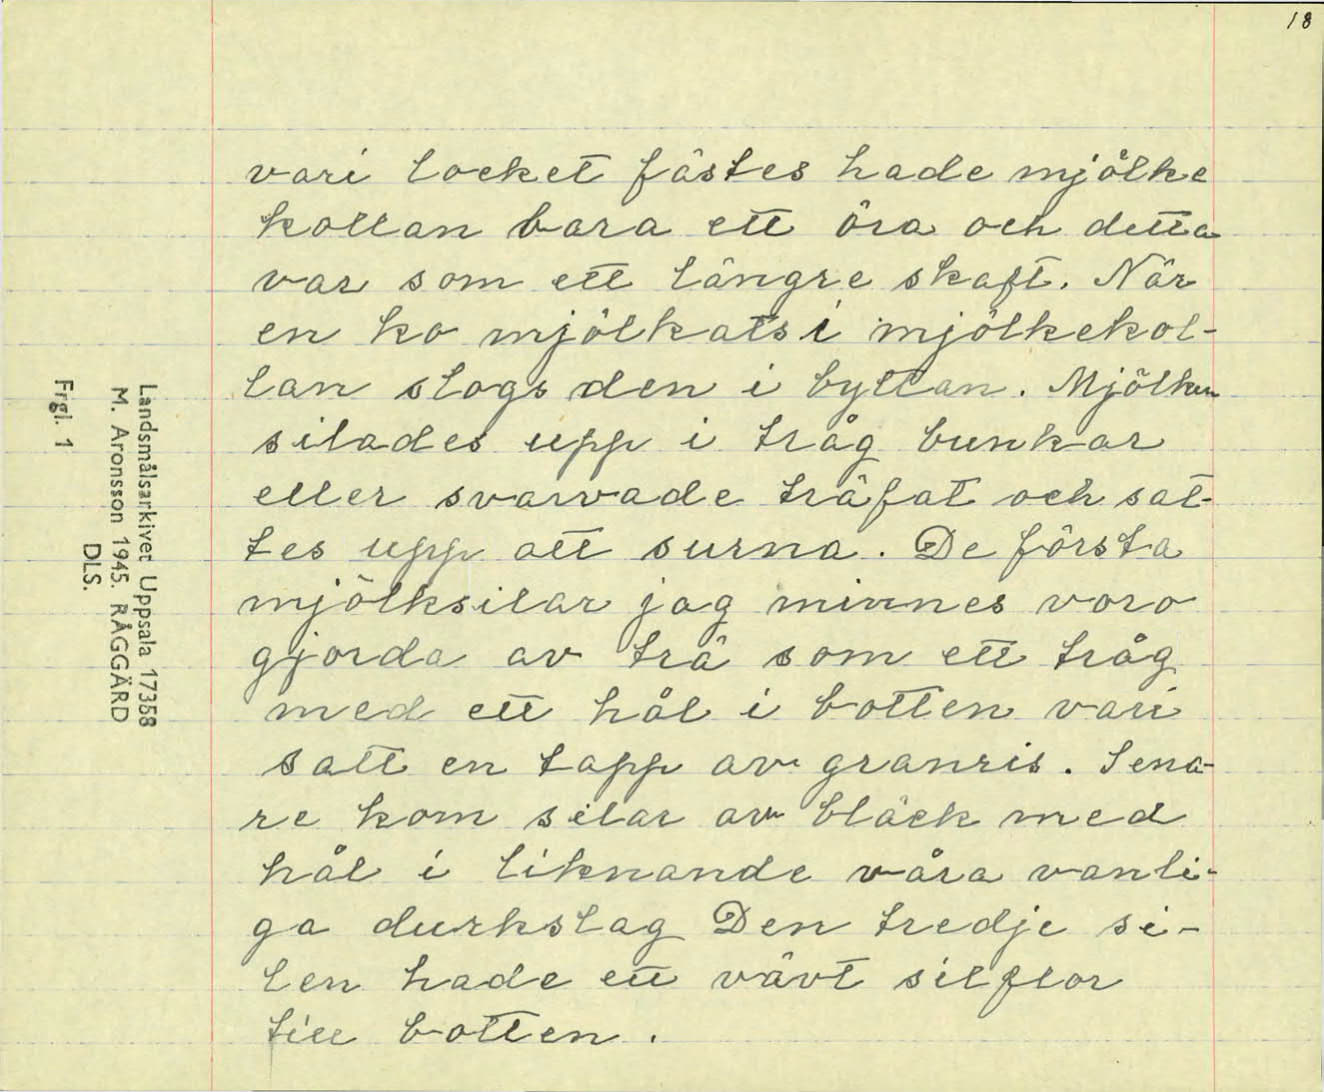 18
vari locket fästes hade mjölke
kollan bara ett öra och detta
var som ett längre skaft. När
en ko mjölkats i mjölkekol-
lan slogs den i byttan. Mjölken
silades upp i tråg bunkar
eller svarvade träfat och sat-
tes upp att surna. De första
mjölksilar jag minnes voro
gjorda av trä som ett tråg
med ett hål i botten vari
satt en tapp av granris. Sena-
re kom silar av bläck med
hål i liknande våra vanli-
ga durkslag Den tredje si-
len hade ett vävt silflor
till botten.
Landsmålsarkivet Uppsala 17358
M. Aronsson 1945. RÅGGÄRD
DLS.
Frgl. 1